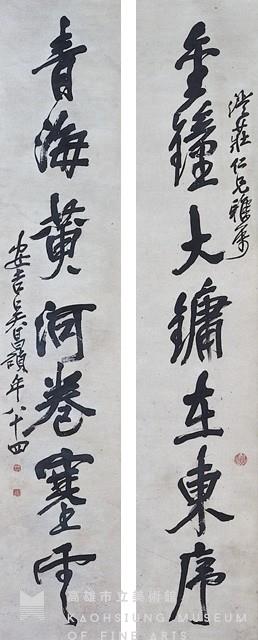 金鐘大鏞在東序
莊仁兄雅屬
青海黃河卷塞雲
安吉吳昌碩年八十四
高雄市立美術館
KAOHSIUNG MUSEUM
OF FINE ARTS